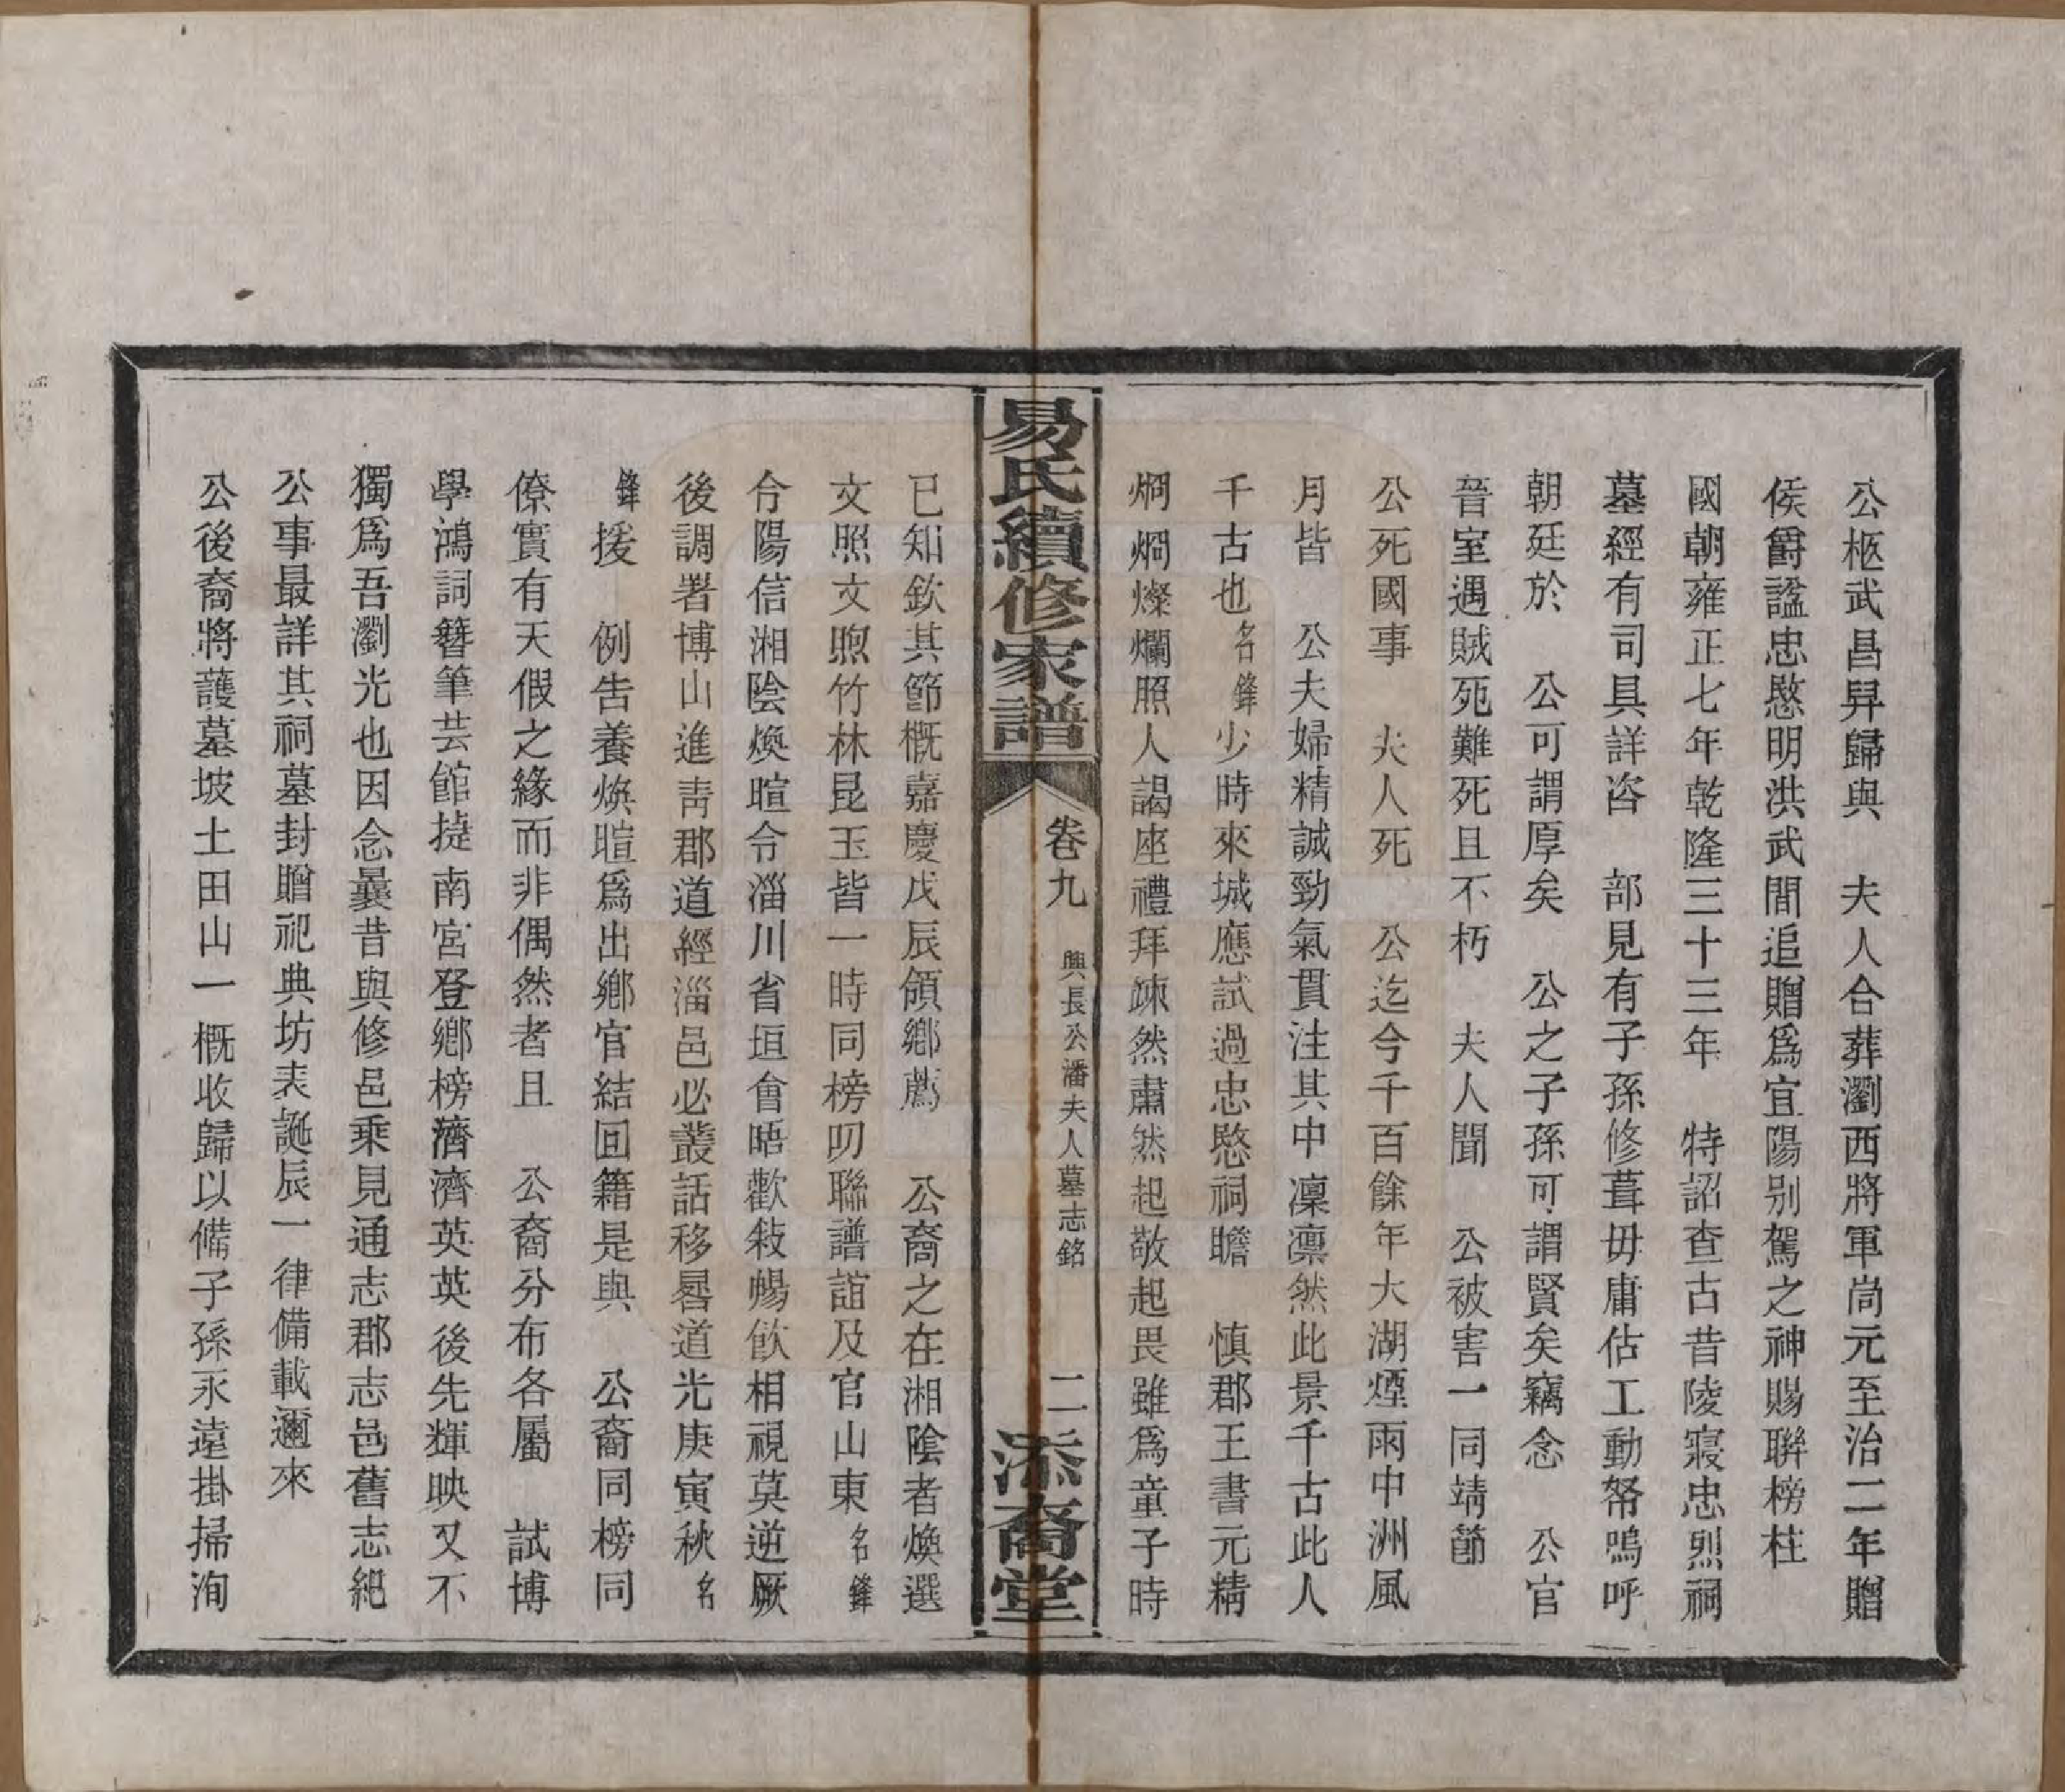 公柩武昌舁歸與　夫人合葬瀏西將軍尚元至治二年贈
侯爵諡忠愍明洪武間追贈爲宜陽别駕之神賜聯榜柱
國朝雍正七年乾隆三十三年　特詔查古昔陵寢忠烈祠
墓經有司具詳咨　部見有子孫修葺毋庸估工動帑嗚呼
朝廷於　公可謂厚矣　公之子孫可謂賢矣竊念　公官
晉室遇賊死難死且不朽　夫人聞　公被害一同靖節
公死國事　夫人死　公迄今千百餘年大湖煙雨中洲風
月皆　公夫婦精誠勁氣貫注其中凜凜然此景千古此人
千古也名鋒少時來城應試過忠愍祠瞻　慎郡王書元精
烱烱燦爛照人謁座禮拜竦然肅然起敬起畏雖爲童子時
易氏續修家譜
卷九　興長公潘夫人墓志銘　二
添裔堂
已知欽其節概嘉慶戊辰領鄉薦　公裔之在湘陰者煥選
文照文煦竹林昆玉皆一時同榜叨聯譜誼及官山東名鋒
令陽信湘陰煥暄令淄川省垣會晤歡敍暢飲相視莫逆厥
後調署博山進靑郡道經淄邑必叢話移晷道光庚寅秋名
鋒援　例告養煥暄爲出鄉官結回籍是與　公裔同榜同
僚實有天假之緣而非偶然者且　公裔分布各屬　試博
學鴻詞簪筆芸館捷南宮登鄉榜濟濟英英後先輝映又不
獨爲吾瀏光也因念曩昔與修邑乘見通志郡志邑舊志紀
公事最詳其祠墓封贈祀典坊表誕辰一律備載邇來
公後裔將護墓坡土田山一概收歸以備子孫永遠掛掃洵